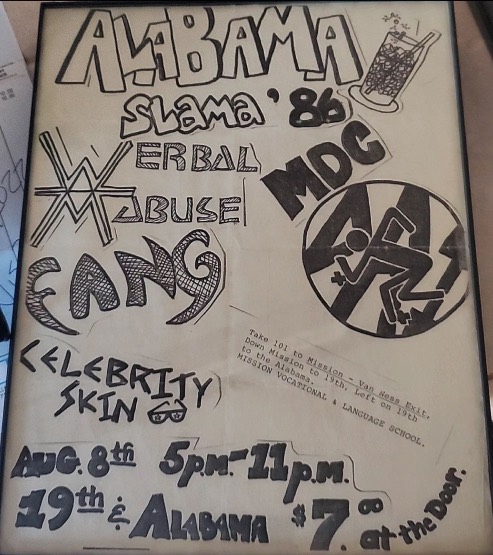 ALABAMA
SLAMA '86
VERBAL
ABUSE
MDC
FANG
Take 101 to Mission - Van Ness Exit,
Down Mission to 19th, Left on 19th
to the Alabama.
MISSION VOCATIONAL & LANGUAGE SCHOOL.
CELEBRITY
SKIN
AUG. 8th 5p.m.-11p.m.
19th & ALABAMA $7.00 at the Door.